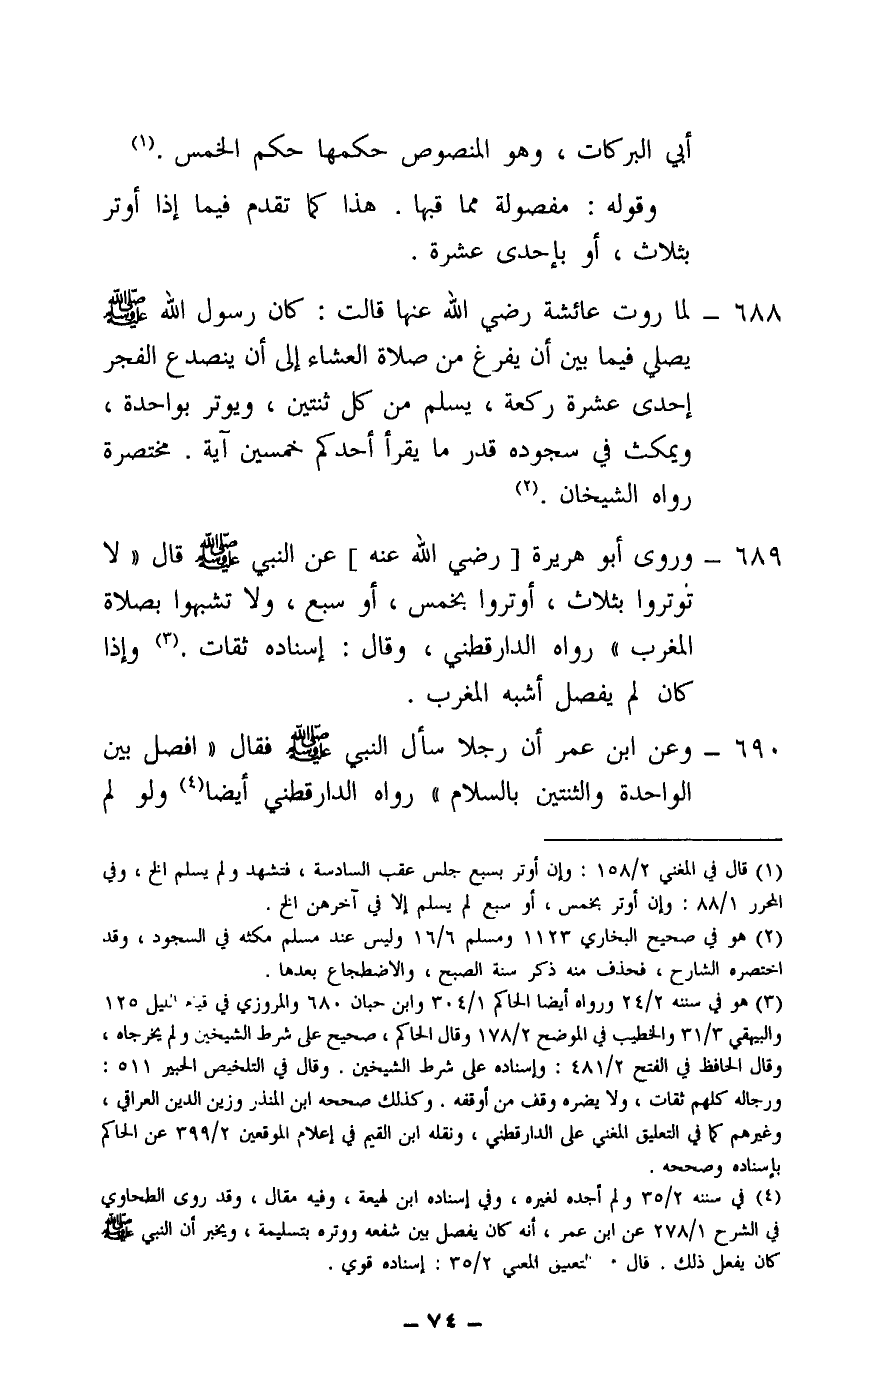 أبي البركات ، وهو المنصوص حكمها حكم الخمس .(١)
وقوله : مفصولة مما قبها . هذا كما تقدم فيما إذا أوتر
بثلاث ، أو بإحدى عشرة .
٦٨٨ – لما روت عائشة رضي الله عنها قالت : كان رسول الله ﷺ
يصلي فيما بين أن يفرغ من صلاة العشاء إلى أن ينصدع الفجر
إحدى عشرة ركعة ، يسلم من كل ثنتين ، ويوتر بواحدة ،
ويمكث في سجوده قدر ما يقرأ أحدكم خمسين آية . مختصرة
رواه الشيخان .(٢)
٦٨٩ – وروى أبو هريرة [ رضي الله عنه ] عن النبي ﷺ قال « لا
توتروا بثلاث ، أوتروا بخمس ، أو سبع ، ولا تشبهوا بصلاة
المغرب » رواه الدارقطني ، وقال : إسناده ثقات .(٣) وإذا
كان لم يفصل أشبه المغرب .
٦٩٠ – وعن ابن عمر أن رجلا سأل النبي ﷺ فقال « افصل بين
الواحدة والثنتين بالسلام » رواه الدارقطني أيضا(٤) ولو لم
(١) قال في المغني ١٥٨/٢ : وإن أوتر بسبع جلس عقب السادسة ، فتشهد ولم يسلم الخ ، وفي
المحرر ٨٨/١ : وإن أوتر بخمس ، أو سبع لم يسلم إلا في آخرهن الخ .
(٢) هو في صحيح البخاري ١١٢٣ ومسلم ١٦/٦ وليس عند مسلم مكثه في السجود ، وقد
اختصره الشارح ، فحذف منه ذكر سنة الصبح ، والاضطجاع بعدها .
(٣) هو في سننه ٢٤/٢ ورواه أيضا الحاكم ٣٠٤/١ وابن حبان ٦٨٠ والمروزي في قيام الليل ١٢٥
والبيهقي ٣١/٣ والخطيب في الموضح ١٧٨/٢ وقال الحاكم ، صحيح على شرط الشيخين ولم يخرجاه ،
وقال الحافظ في الفتح ٤٨١/٢ : وإسناده على شرط الشيخين . وقال في التلخيص الحبير ٥١١ :
ورجاله كلهم ثقات ، ولا يضره وقف من أوقفه . وكذلك صححه ابن المنذر وزين الدين العراقي ،
وغيرهم كما في التعليق المغني على الدارقطني ، ونقله ابن القيم في إعلام الموقعين ٣٩٩/٢ عن الحاكم
بإسناده وصححه .
(٤) في سننه ٣٥/٢ ولم أجده لغيره ، وفي إسناده ابن لهيعة ، وفيه مقال ، وقد روى الطحاوي
في الشرح ٢٧٨/١ عن ابن عمر ، أنه كان يفصل بين شفعه ووتره بتسليمة ، ويخبر أن النبي ﷺ
كان يفعل ذلك . قال التعليق المغني ٣٥/٢ : إسناده قوي .
– ٧٤ –